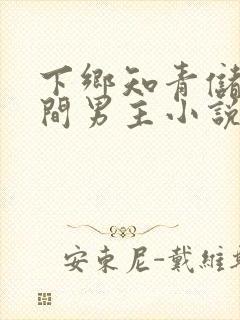 下鄉知青儲
間男主小說
安東尼-戴維斯